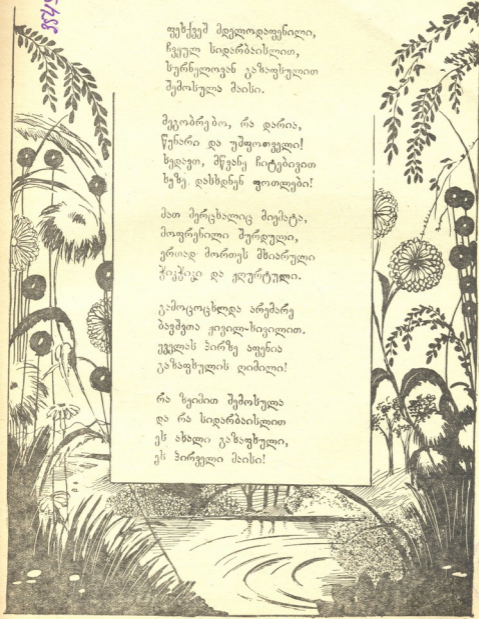 ფეხქვეშ მდელოდაფენილი,
ჩვეულ სიდარბაისლით,
სურნელოვან გაზაფხულით
შემოსულა მაისი.
მეგობრებო, რა დარია,
წყნარი და უშფოთველი!
ხედავთ, მწვანე ჩიტებივით
ხეზე დასხდნენ ფოთლები!
მათ მერცხალიც მიემატა,
მოფრენილი შურდული,
ერთად მორთეს მხიარული
ჭიკჭიკი და ჟღურტული.
გამოცოცხლდა არემარე
ბავშვთა ჟივილ-ხივილით.
ყველას პირზე აფენია
გაზაფხულის ღიმილი!
რა ზეიმით შემოსულა
და რა სიდარბაისლით
ეს ახალი გაზაფხული,
ეს პირველი მაისი!